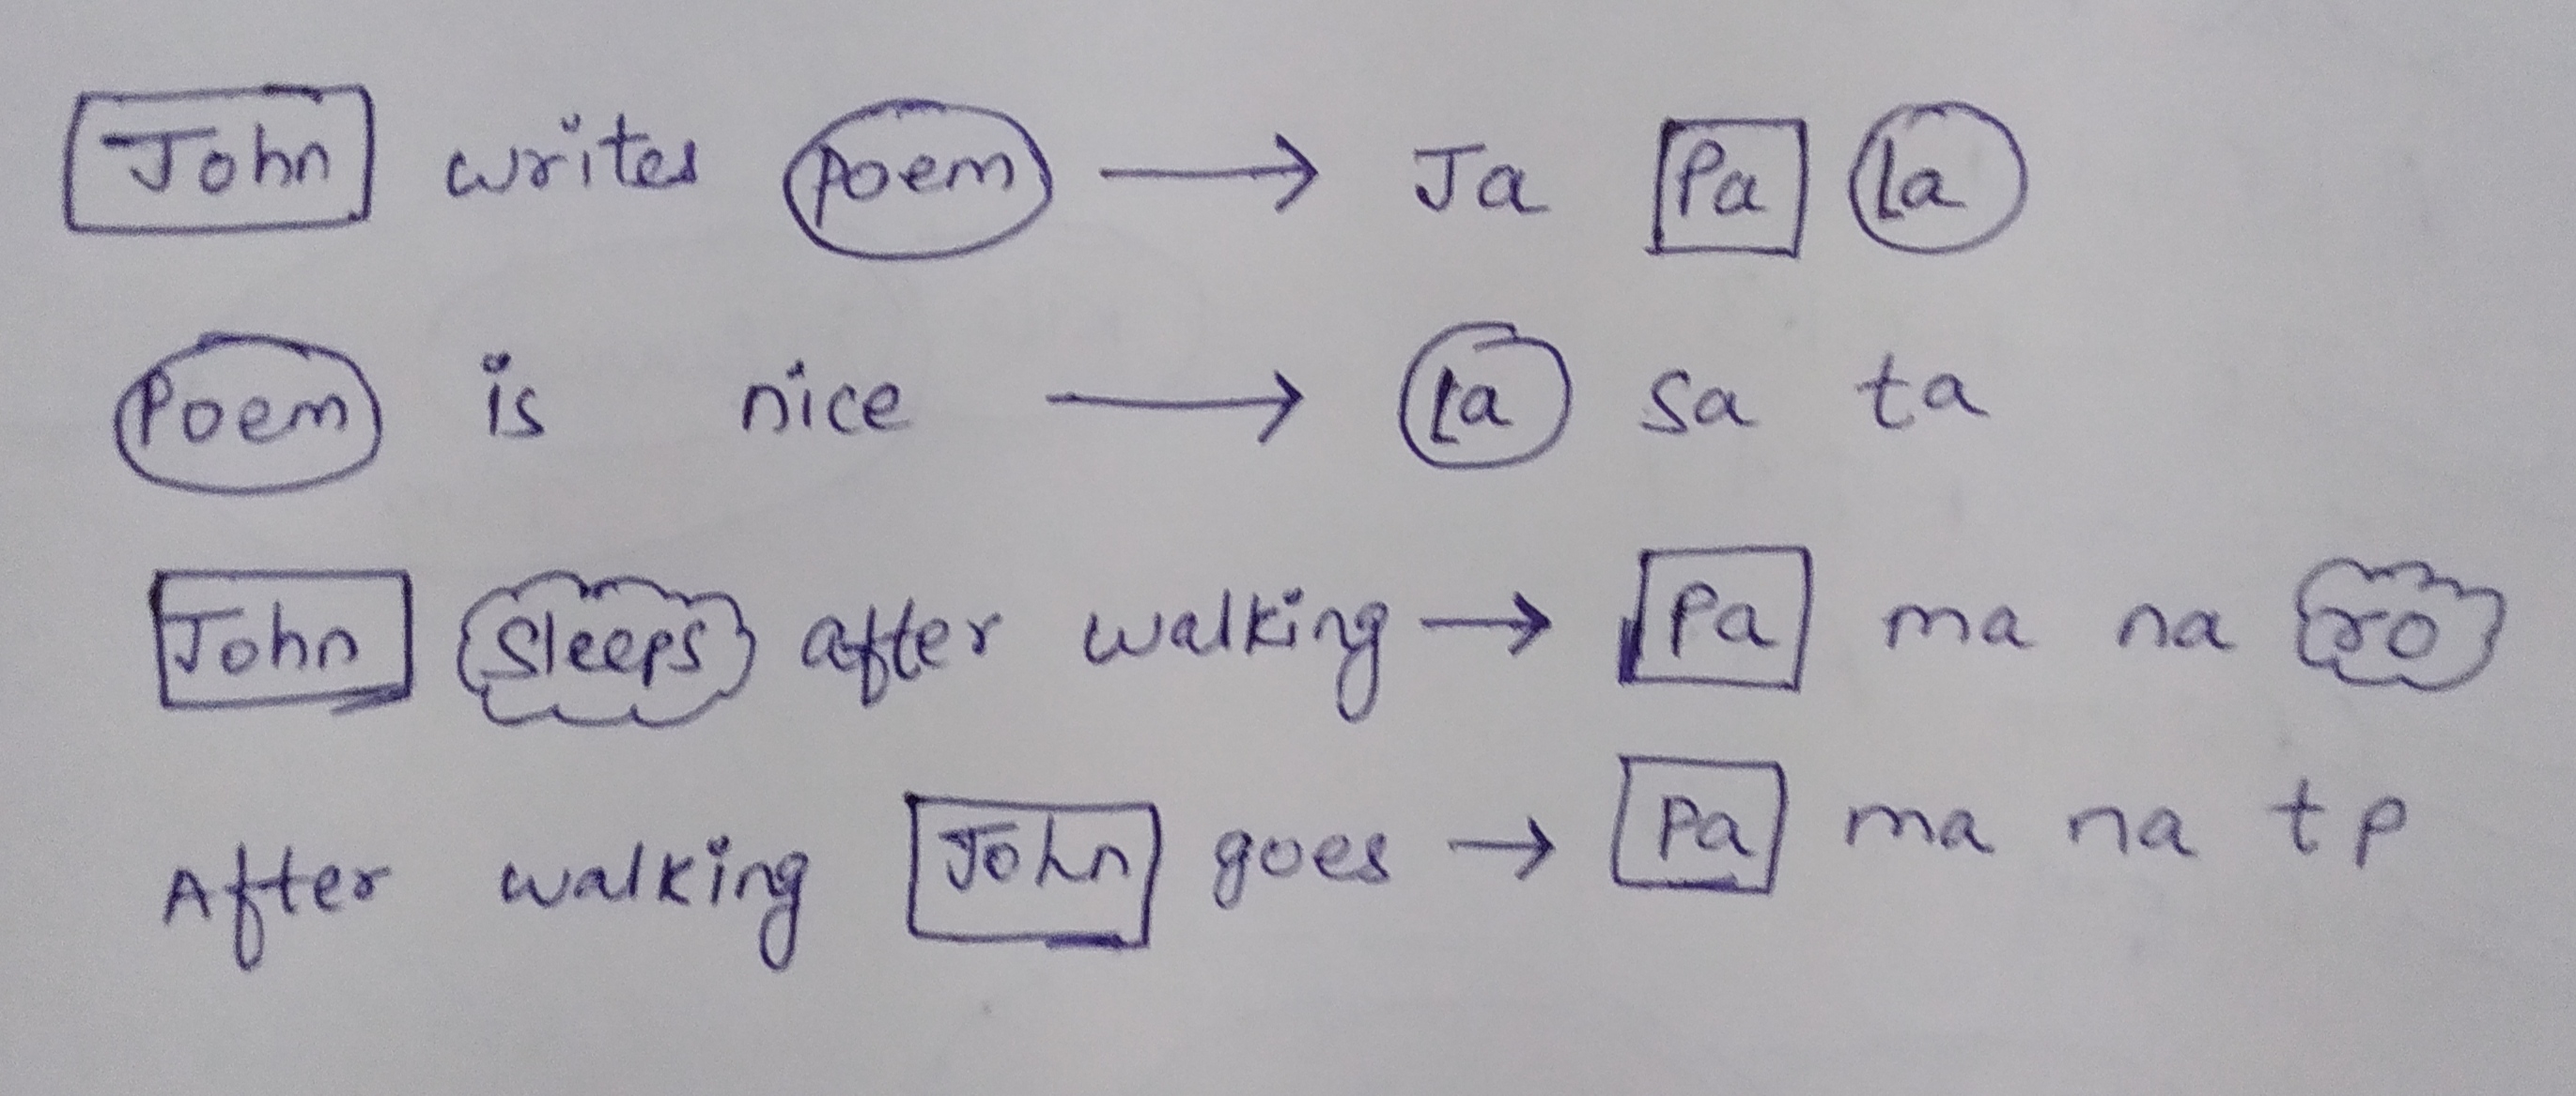 John writes Poem → Ja Pa la
Poem is nice → la sa ta
John sleeps after walking → Pa ma na ro
After walking John goes → Pa ma na tp